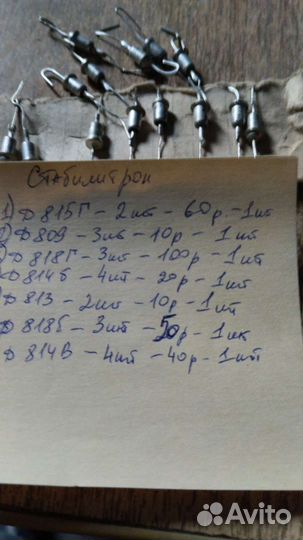 Стабилитрон
1) Д 815Г - 2шт - 60р - 1шт
2) Д 809 - 3шт - 10р - 1шт
) Д 818Г - 3шт - 100р - 1шт
Д 814Б - 4шт - 20р - 1шт
) Д 813 - 2шт - 10р - 1шт
Д 818Б - 3шт - 50р - 1шт
Д 814В - 4шт - 40р - 1шт
Avito